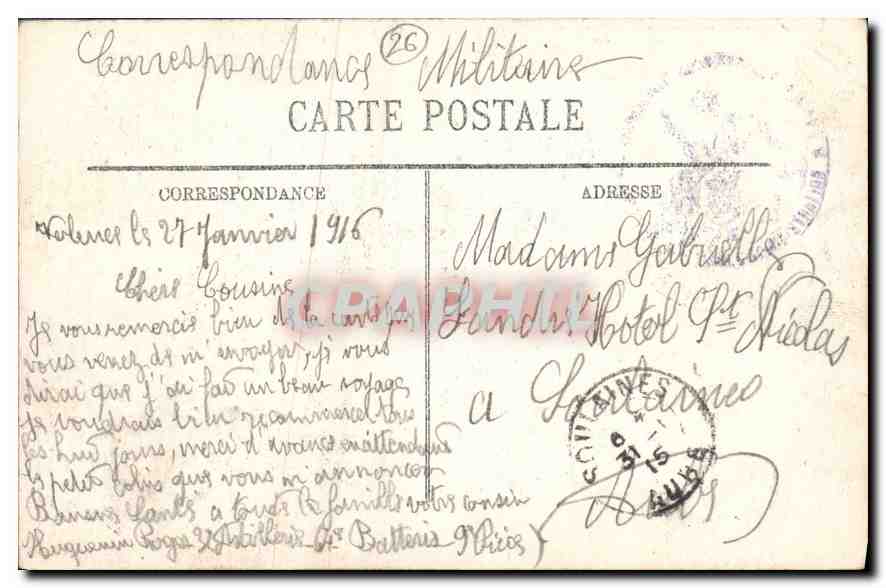 Correspondance Militaire
26
CARTE POSTALE
CORRESPONDANCE
ADRESSE
le 27 Janvier 1916
Chère Cousine
Je vous remercie bien de la carte que
vous venez de m'envoyer, je vous
dirai que j'ai fait un beau voyage
je voudrais bien recommencer tous
les huit jours, merci d'avance en attendant
le petit colis que vous m'annoncez
Bonne Santé a toute la famille votre cousin
Huguenin Roger Artillerie Batterie Pièce
Madame Gabrielle
Landry Hotel St Nicolas
a Soulaines
(Aube)
SOULAINES
6
31 15
AUBE
CRAPHIL